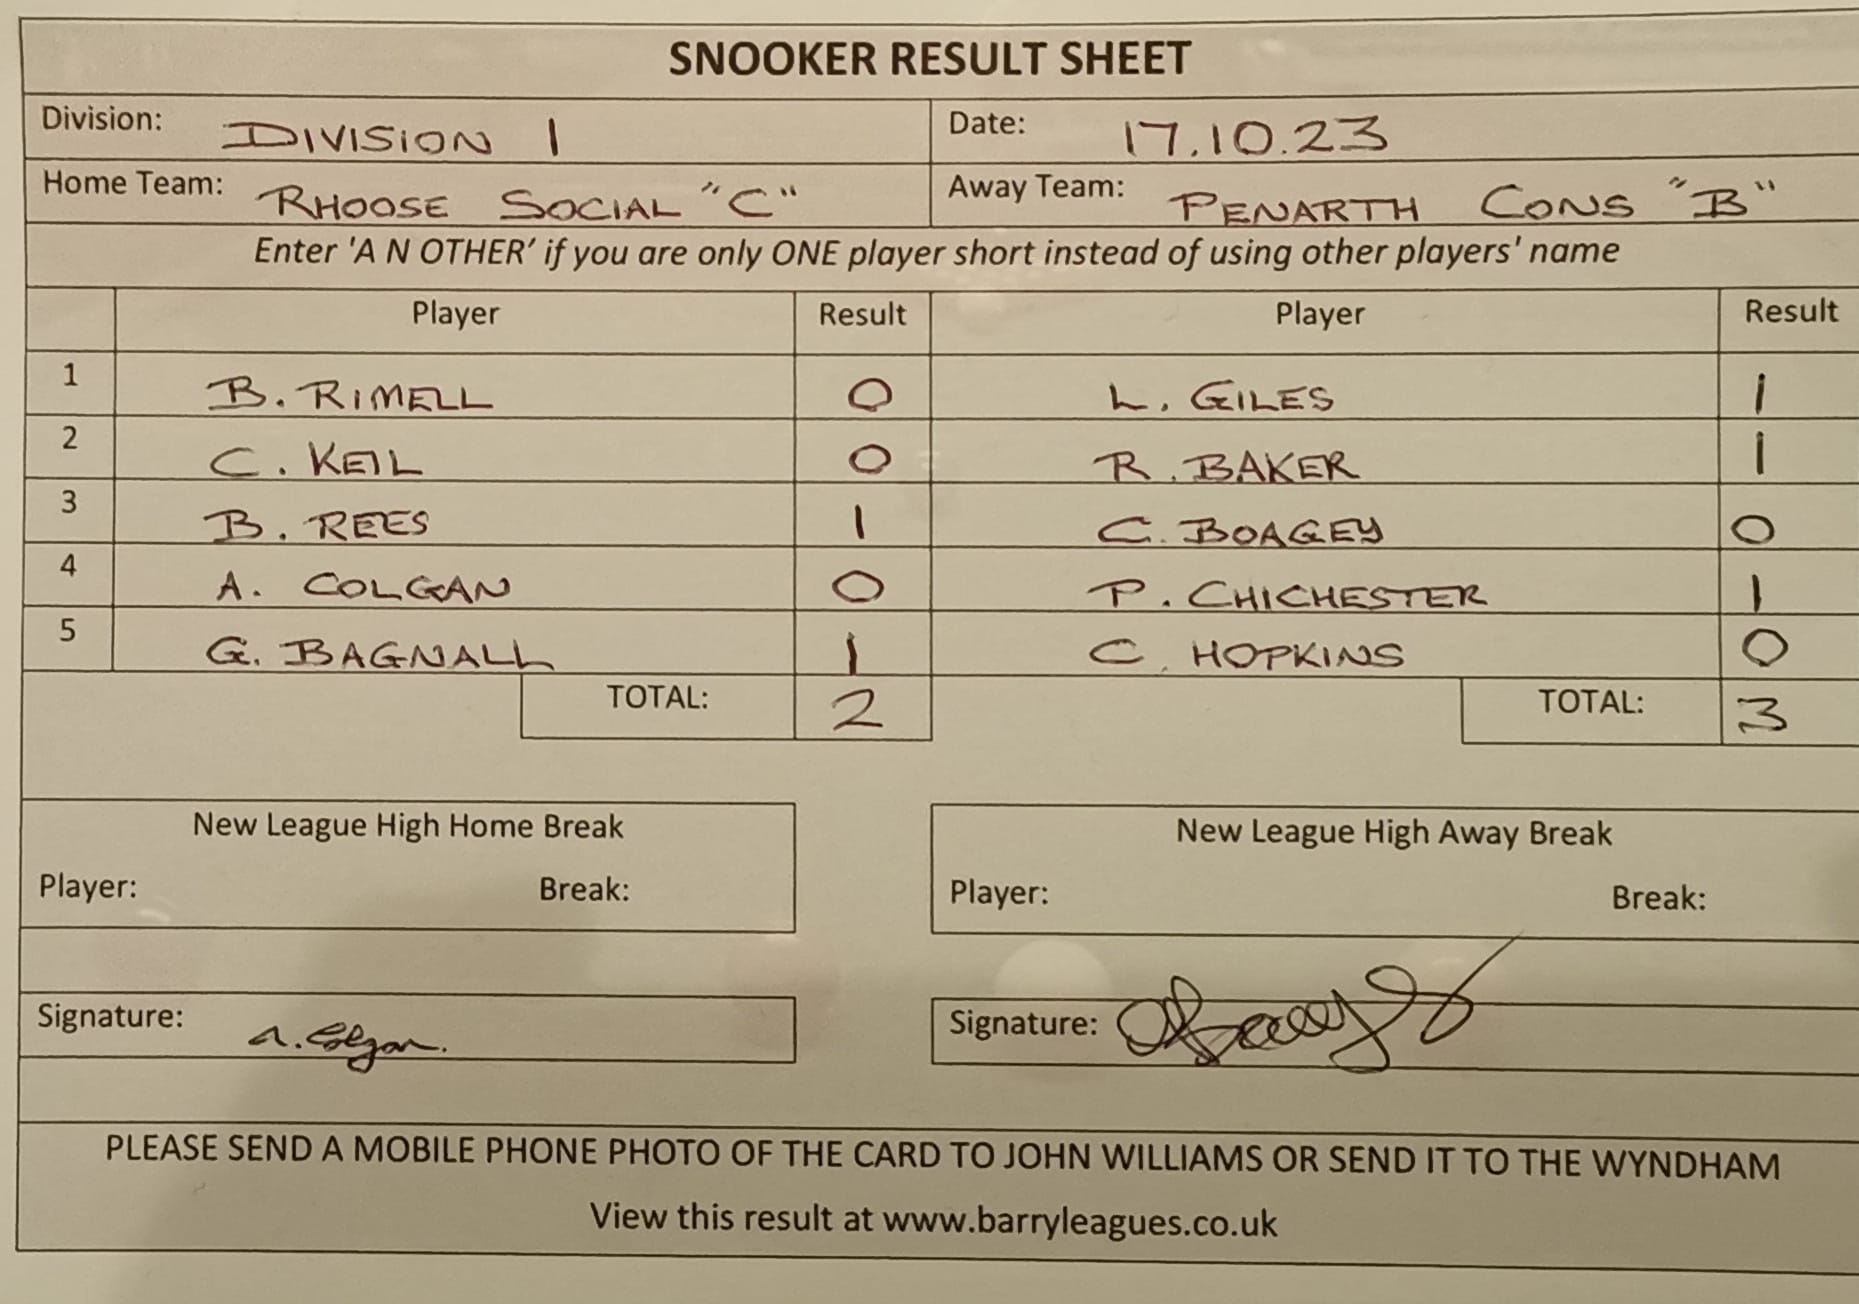 SNOOKER RESULT SHEET
Division: DIVISION 1 Date: 17.10.23
Home Team: RHOOSE SOCIAL "C" Away Team: PENARTH CONS "B"
Enter 'A N OTHER' if you are only ONE player short instead of using other players' name
Player Result Player Result
1 B. RIMELL 0 L. GILES 1
2 C. KEIL 0 R. BAKER 1
3 B. REES 1 C. BOAGEY 0
4 A. COLGAN 0 P. CHICHESTER 1
5 G. BAGNALL 1 C. HOPKINS 0
TOTAL: 2 TOTAL: 3
New League High Home Break New League High Away Break
Player: Break: Player: Break:
Signature: A. Colgan. Signature:
PLEASE SEND A MOBILE PHONE PHOTO OF THE CARD TO JOHN WILLIAMS OR SEND IT TO THE WYNDHAM
View this result at www.barryleagues.co.uk